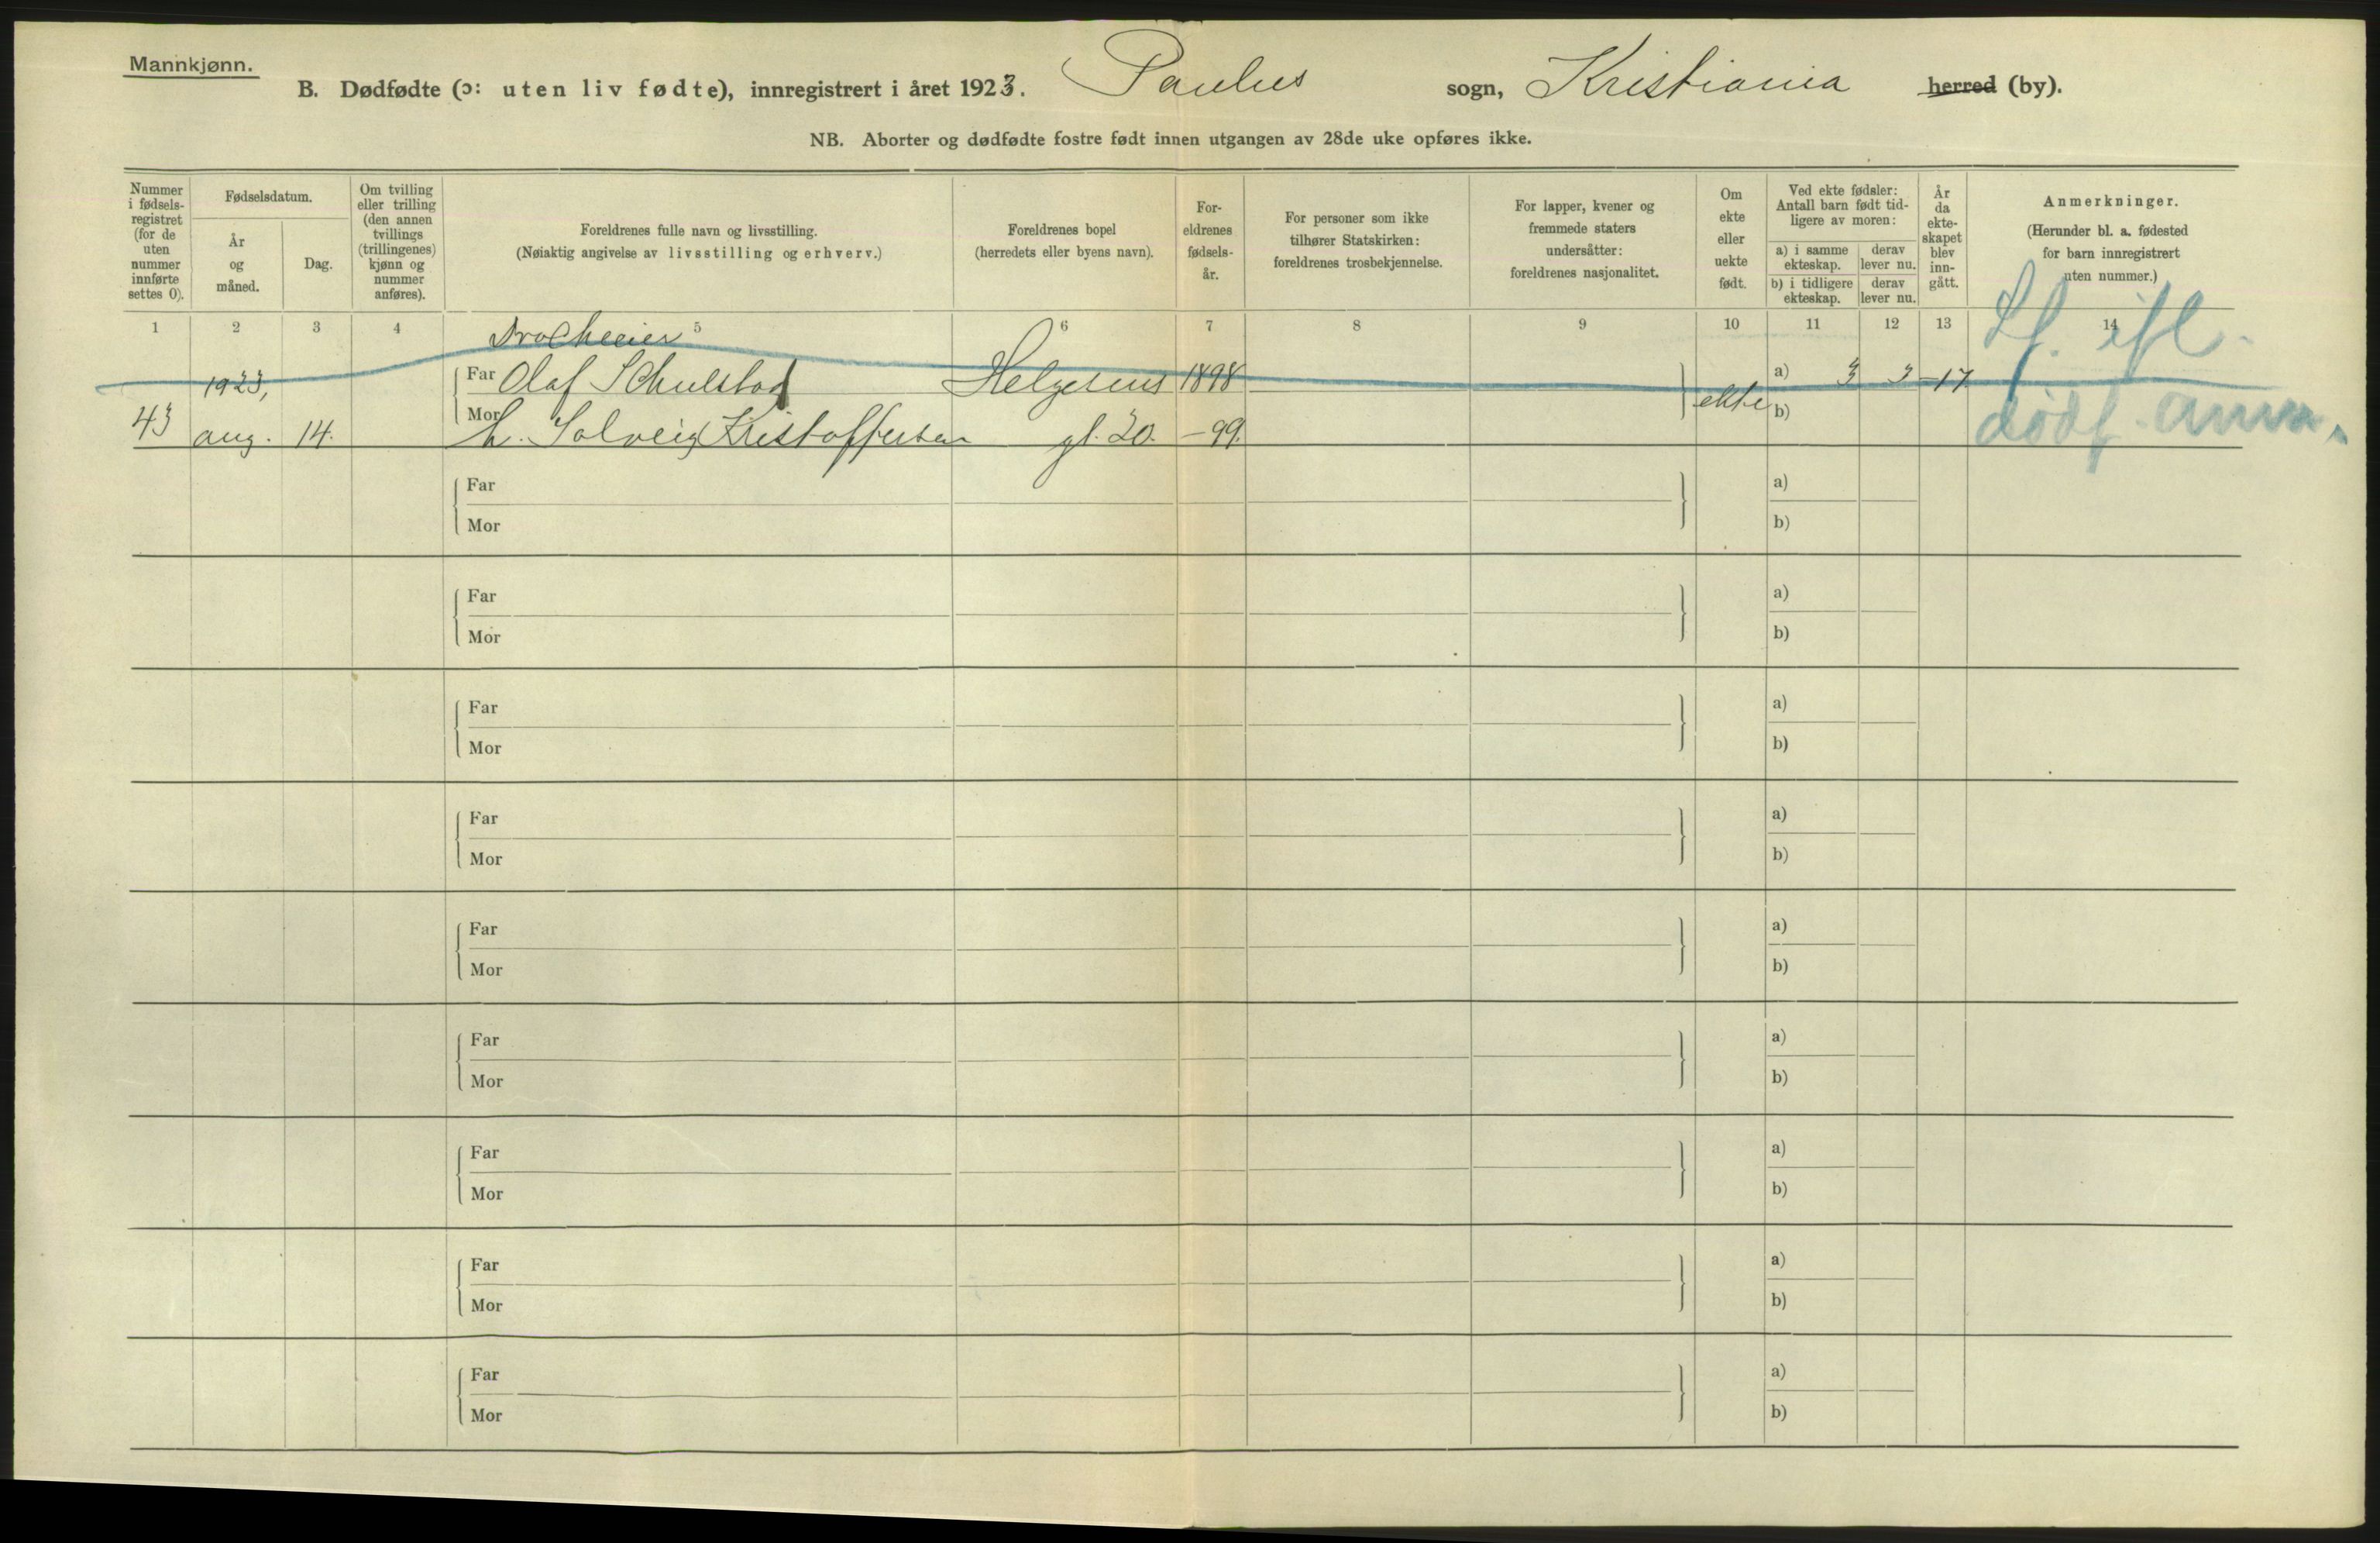 Mannkjønn.
B. Dødfødte (ɔ: uten liv fødte), innregistrert i året 1923. Paulus sogn, Kristiania herred (by).
NB. Aborter og dødfødte fostre født innen utgangen av 28de uke opføres ikke.
Nummer i fødsels-registret (for de uten nummer innførte settes 0).
Fødselsdatum.
År og måned.
Dag.
Om tvilling eller trilling (den annen tvillings (trillingenes) kjønn og nummer anføres).
Foreldrenes fulle navn og livsstilling.
(Nøiaktig angivelse av livsstilling og erhverv.)
Foreldrenes bopel
(herredets eller byens navn).
For-eldrenes fødsels-år.
For personer som ikke tilhører Statskirken: foreldrenes trosbekjennelse.
For lapper, kvener og fremmede staters undersåtter: foreldrenes nasjonalitet.
Om ekte eller uekte født.
Ved ekte fødsler: Antall barn født tid-ligere av moren:
a) i samme ekteskap.
derav lever nu.
b) i tidligere ekteskap.
derav lever nu.
År da ekte-skapet blev inn-gått.
Anmerkninger.
(Herunder bl. a. fødested for barn innregistrert uten nummer.)
1 2 3 4 5 6 7 8 9 10 11 12 13 14
1923, Far Olaf Schulstad Helgesens 1898 a) 3 3 -17
43 aug. 14. Mor h. Solveig Kristoffersen gl. 20. -99. ekte b)
dødf.
Far a)
Mor b)
Far a)
Mor b)
Far a)
Mor b)
Far a)
Mor b)
Far a)
Mor b)
Far a)
Mor b)
Far a)
Mor b)
Far a)
Mor b)
Far a)
Mor b)